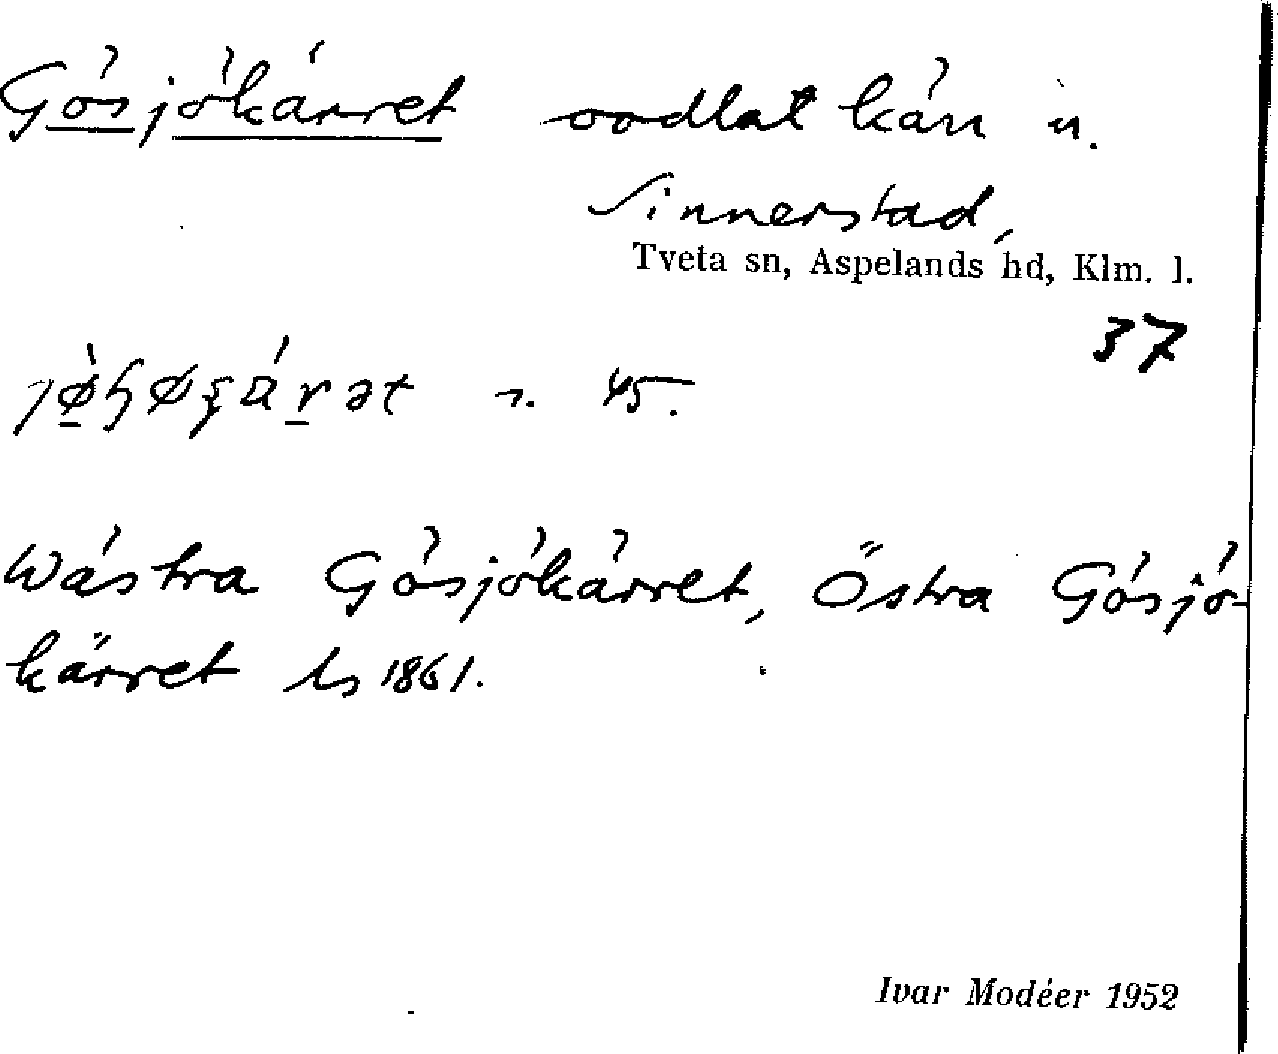 Gösjökärret oodlat kärr n.
Sinnerstad,
Tveta sn, Aspelands hd, Klm. l.
37
n. 45.
Wästra Gösjökärret, Östra Gösjö-
kärret Ls 1861.
Ivar Modéer 1952